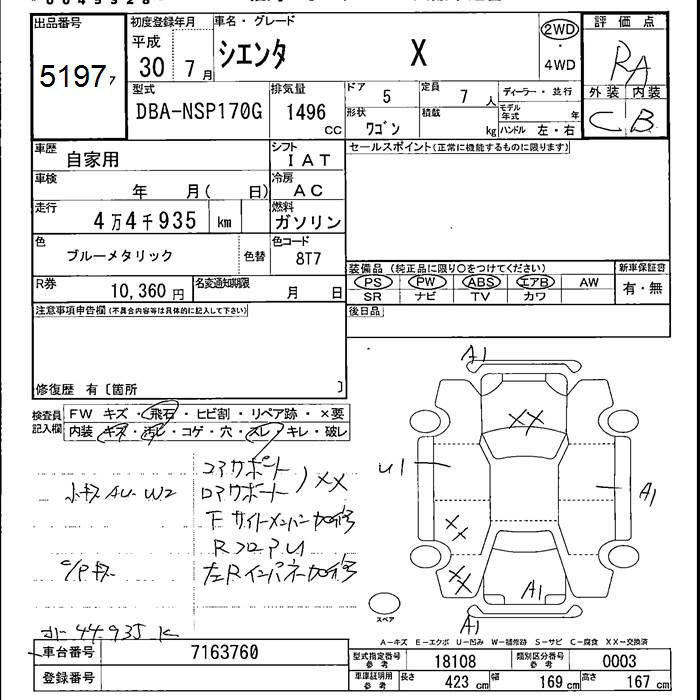 出品番号 初度登録年月 車名・グレード 評価点
5197 7 平成 30 7月 シエンタ X 2WD・4WD RA
外装 内装
C B
型式 排気量 ドア 定員 ディーラー・並行
DBA-NSP170G 1496 CC 5 7人 モデル年式 年
形状 積載 ハンドル 左・右
ワゴン kg
車歴 自家用 シフト IAT セールスポイント(正常に機能するものに限ります)
車検 年 月( 日) 冷房 AC
走行 4万4千935 km 燃料 ガソリン
色 ブルーメタリック 色替 色コード 8T7
装備品(純正品に限り○をつけてください) 新車保証書
R券 10,360円 名変通知期限 月 日 PS PW ABS エアB AW 有・無
SR ナビ TV カワ
注意事項申告欄(不具合内容等は具体的に記入して下さい) 後日品
修復歴 有〔箇所 〕
検査員記入欄 FW キズ・飛石・ヒビ割・リペア跡・×要
内装 キズ・汚レ・コゲ・穴・スレ・キレ・破レ
コアサポート
XX
A1
XX
U1
A1
XX
XX
A1
A1
RフロアU1
スペア
A-キズ E-エクボ U-凹み W-補修跡 S-サビ C-腐食 XX-交換済
車台番号 7163760 型式指定番号 参考 18108 類別区分番号 参考 0003
登録番号 車庫証明用 参考 長さ 423cm 幅 169cm 高さ 167cm